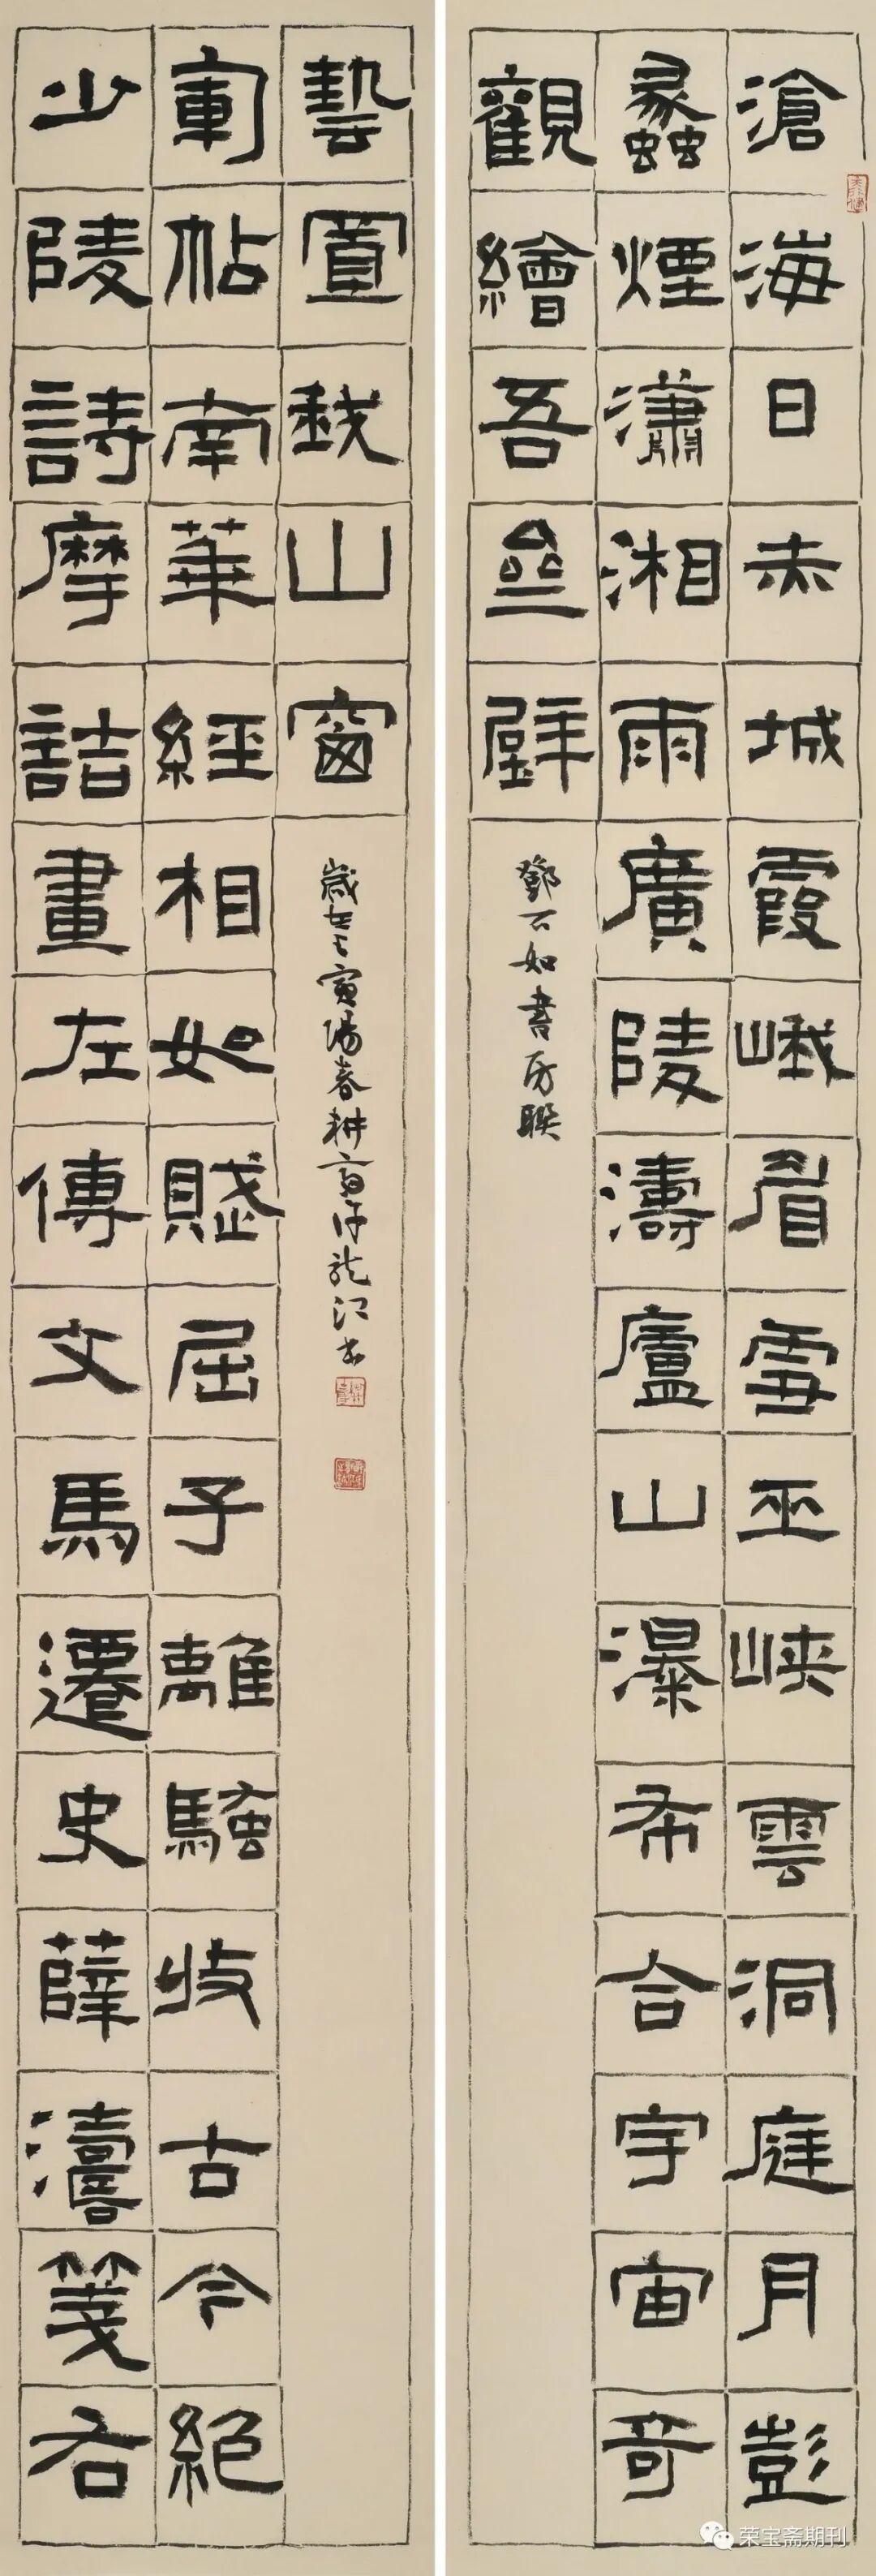 滄海日赤城霞峨眉雪巫峽雲洞庭月彭
蠡煙瀟湘雨廣陵濤廬山瀑布合宇宙奇
觀繪吾齋壁
鄧石如書房聯
少陵詩摩詰畫左傳文馬遷史薛濤箋右
軍帖南華經相如賦屈子離騷收古今絕
藝置我山窗
歲在壬寅陽春耕許龍江書
荣宝斋期刊